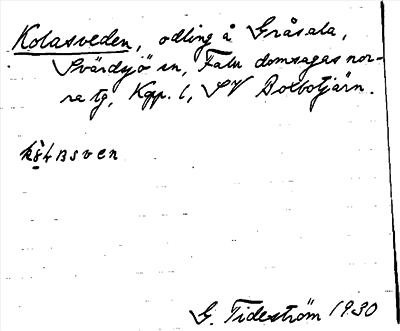 Kolasveden, odling å Gråsala,
Svärdsjö sn, Falu domsagas nor-
ra tg, Kpp. 1, SV Bolbotjärn.
G. Tideström 1930